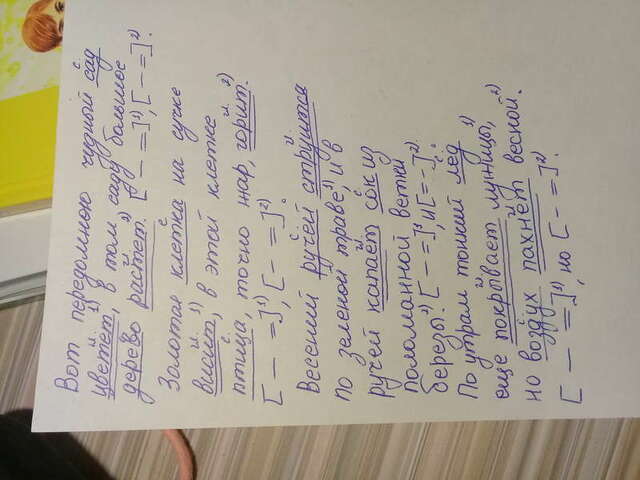 Вот передомною чудный сад
цветет,¹⁾ в том саду большое
дерево растет.²⁾ [— =]¹⁾, [— =]²⁾.
Золотая клетка на сучке
висит,¹⁾ в этой клетке
птица, точно жар, горит.²⁾
[— =]¹⁾, [— =]²⁾.
Весений ручей струится
по зеленой траве,¹⁾ и в
ручей капает сок из
поломанной ветки
березы.²⁾ [— =]¹⁾, и [= —]²⁾.
По утрам тонкий лед¹⁾
още покрывает лунницы,
но воздух пахнет весной.²⁾
[— =]¹⁾, но [— =]²⁾